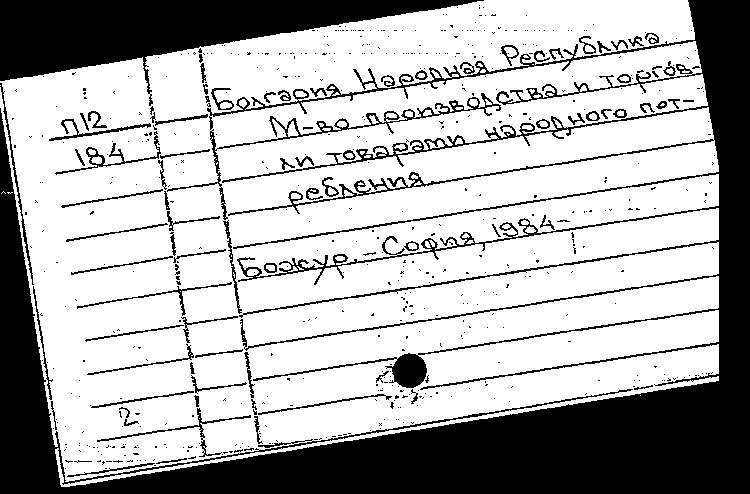 П12
184
Болгария, Народная Республика
М-во производства и торгов-
ли товарами народного пот-
ребления.
Божур. – София, 1984-
2.